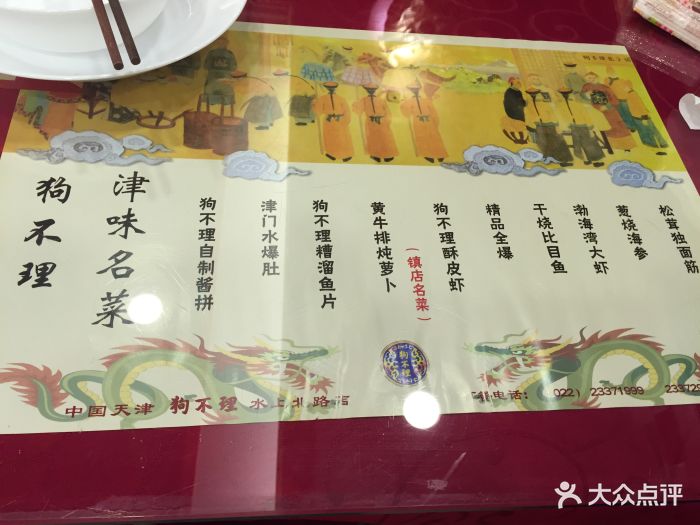 狗不理
津味名菜
狗不理自制酱拼
津门水爆肚
狗不理糟溜鱼片
黄牛排炖萝卜
(镇店名菜)
狗不理酥皮虾
精品全爆
干烧比目鱼
渤海湾大虾
葱烧海参
松茸独面筋
狗不理
中国天津 狗不理 水上北路店
电话: 022) 23371999 233729
大众点评